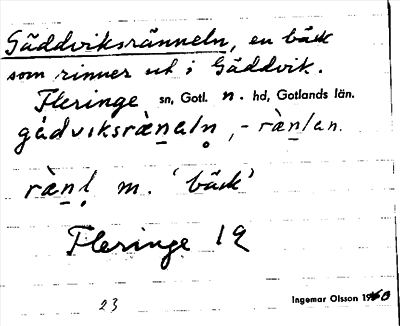 Gäddviksränneln, en bäck
som rinner ut i Gäddvik.
Fleringe sn, Gotl. n. hd, Gotlands län.
gädvıksrὰn̠əln̥, -rὰn̠lən.
rὰn̠l̥ m. 'bäck'
Fleringe 19
23 Ingemar Olsson 1960